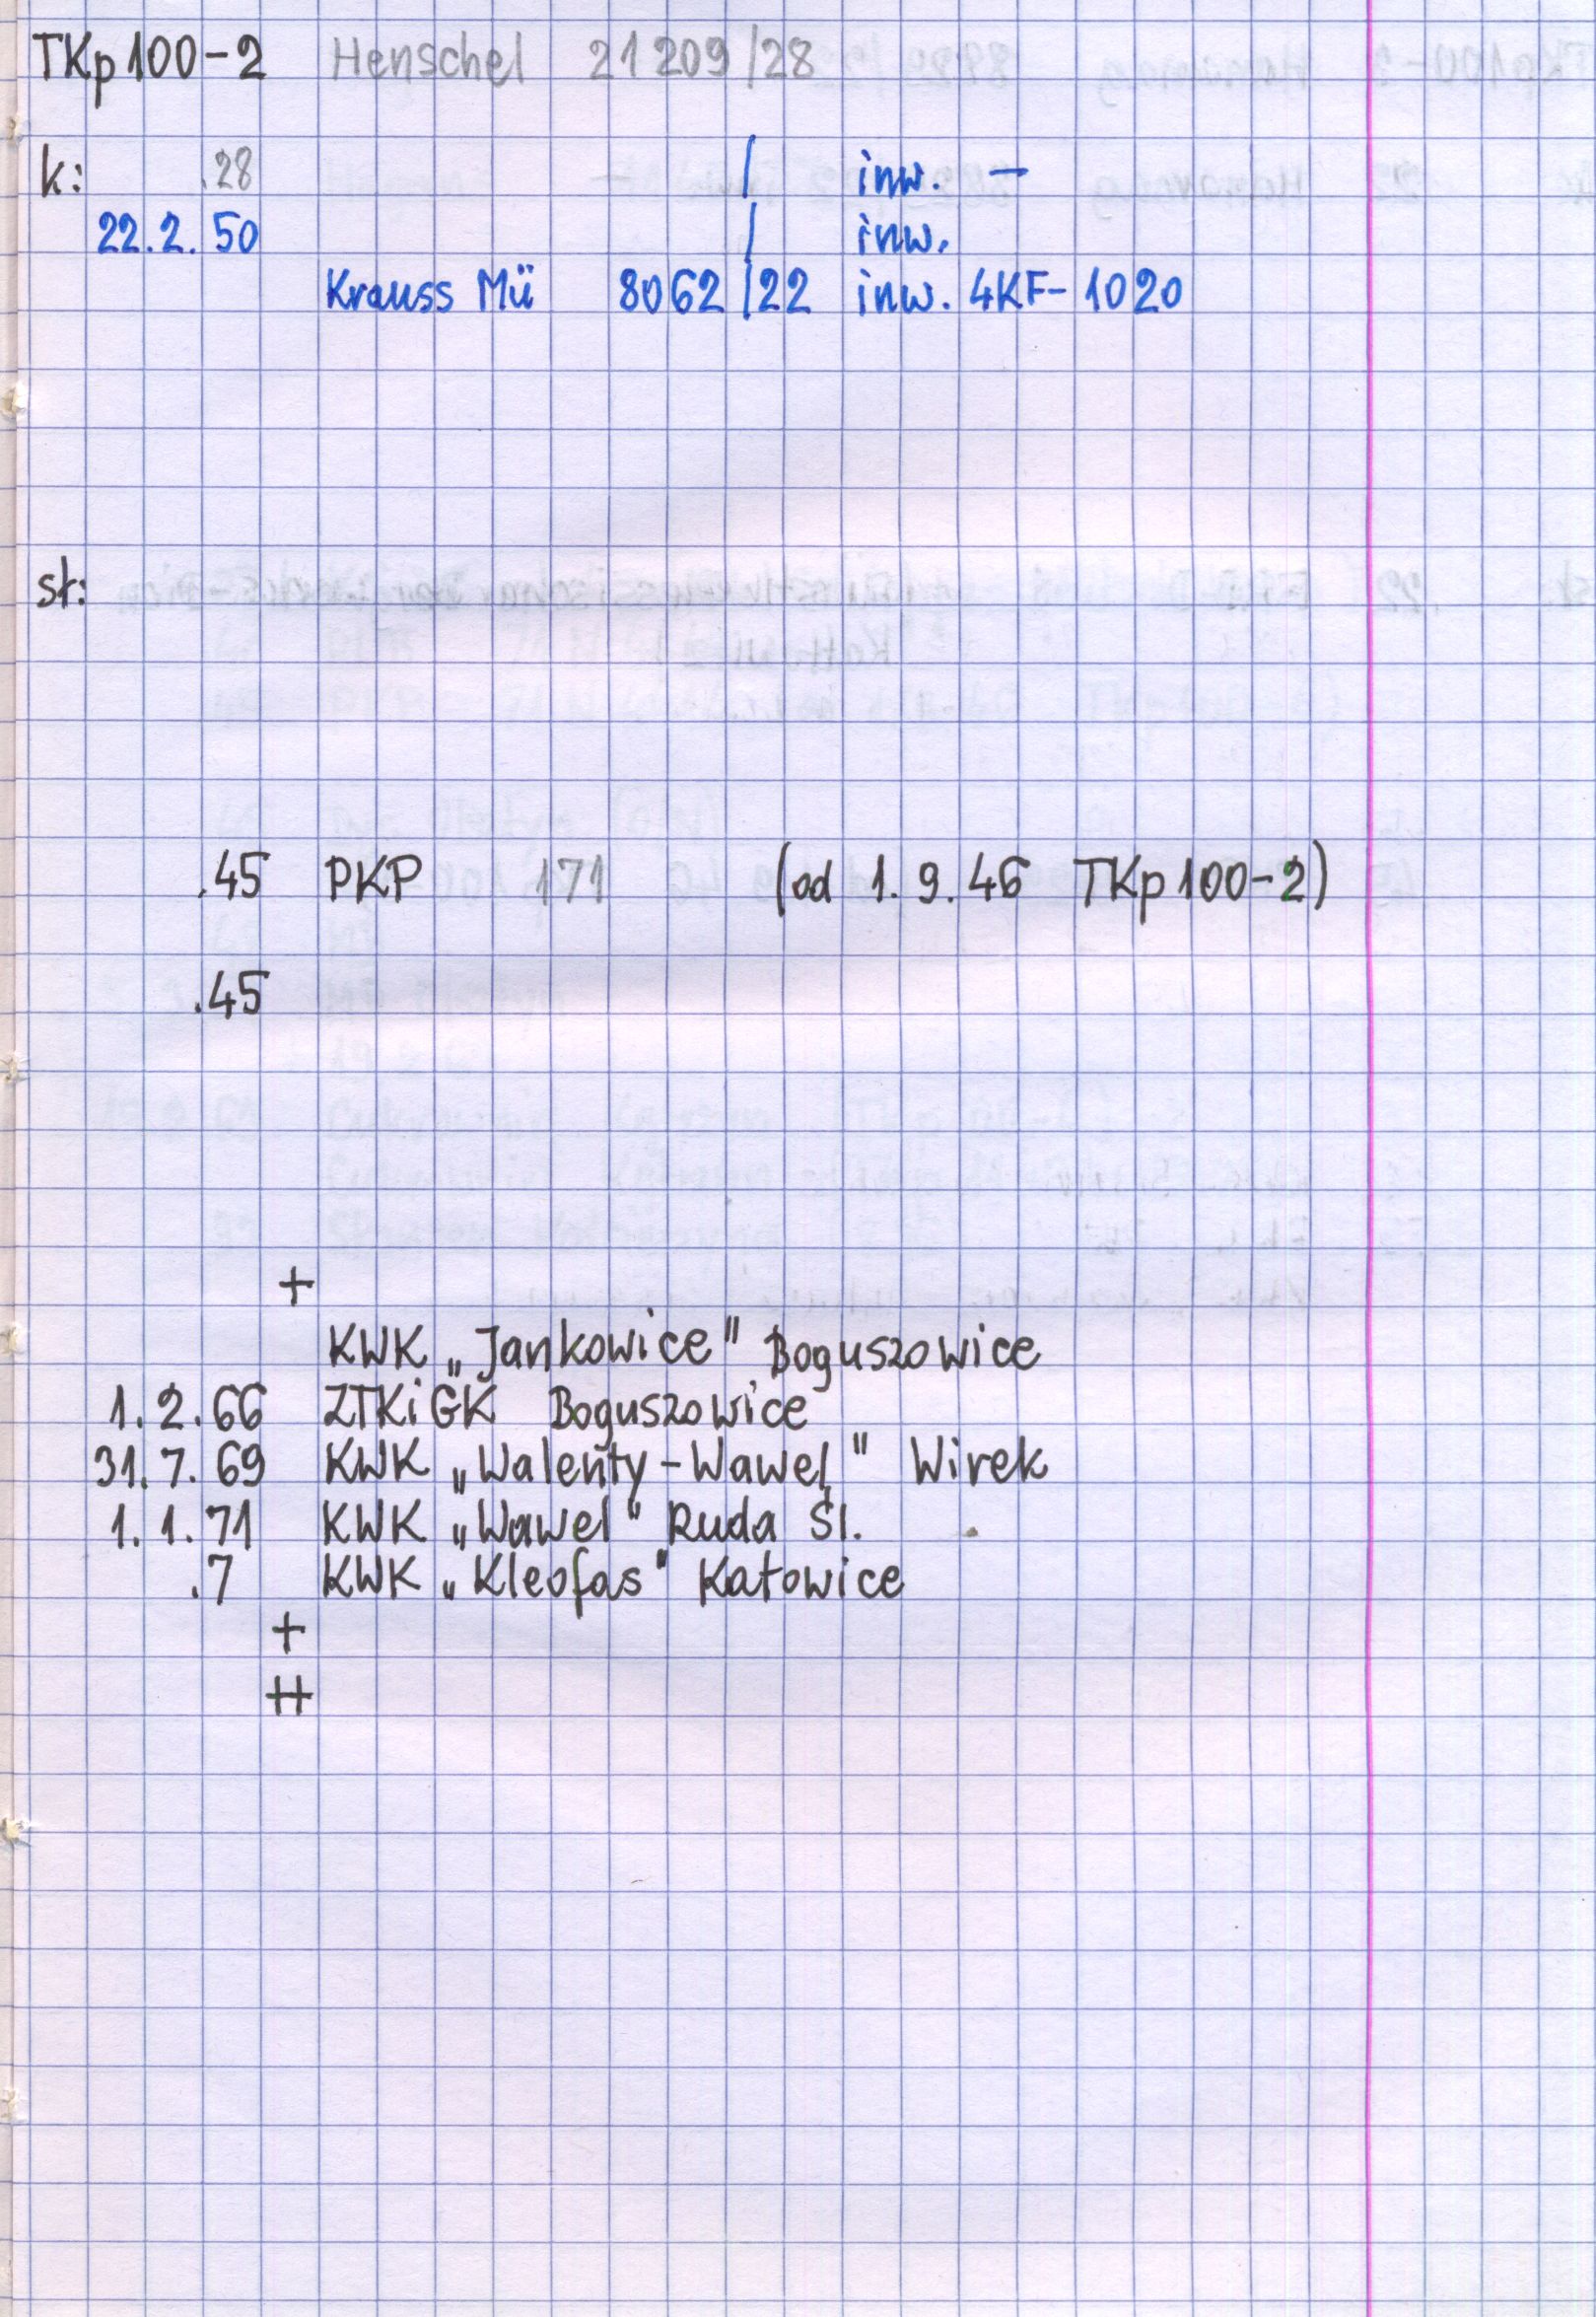 TKp100-2 Henschel 21209/28
k: .28 / inw. —
22.2.50 / inw.
Krauss Mü 8062/22 inw. 4KF-1020
st:
.45 PKP 171 (od 1.9.46 TKp100-2)
.45
+
KWK „Jankowice" Boguszowice
1.2.66 ZTKiGK Boguszowice
31.7.69 KWK „Walenty-Wawel" Wirek
1.1.71 KWK „Wawel" Ruda Śl.
.7 KWK „Kleofas" Katowice
+
++